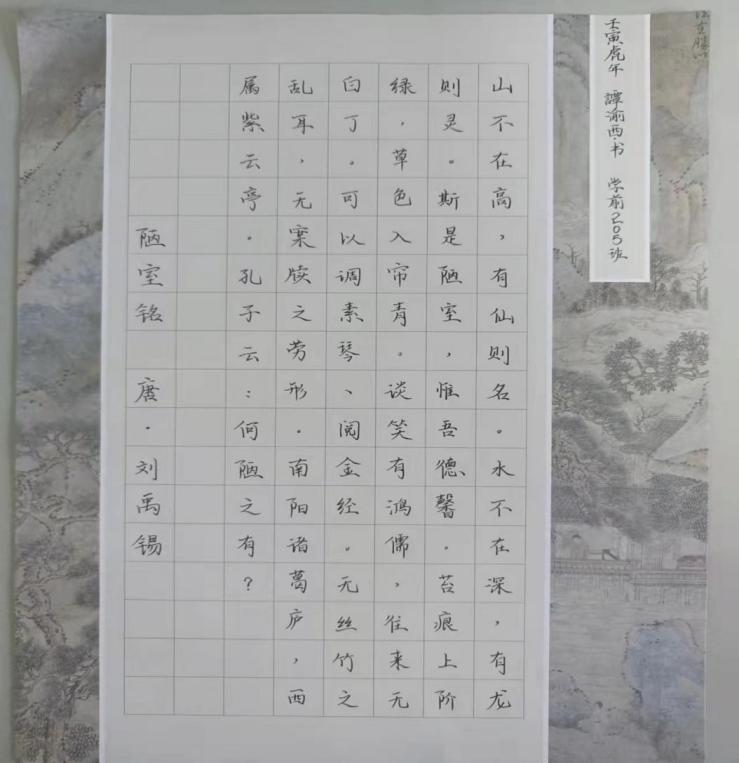 壬寅虎年 譚渝西·书 学前205班
山不在高，有仙则名。水不在深，有龙
则灵。斯是陋室，惟吾德馨。苔痕上阶
绿，草色入帘青。谈笑有鸿儒，往来无
白丁。可以调素琴、阅金经。无丝竹之
乱耳，无案牍之劳形。南阳诸葛庐，西
属紫云亭。孔子云：何陋之有？
陋室铭 唐·刘禹锡